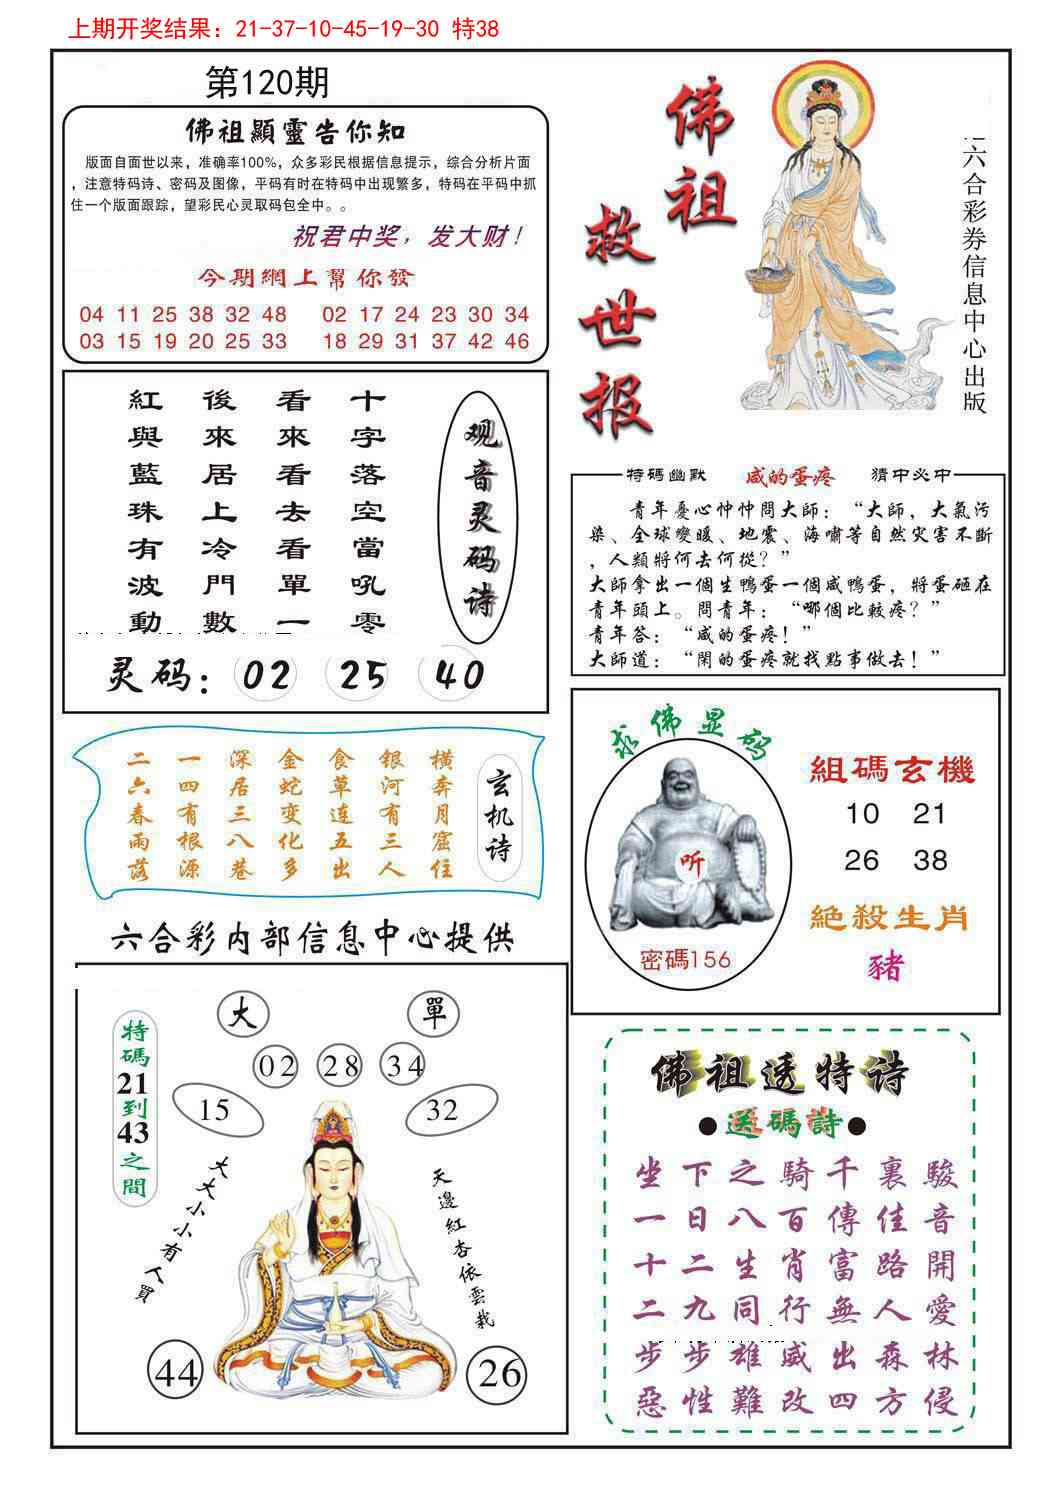 上期开奖结果：21-37-10-45-19-30 特38
第120期
佛祖顯靈告你知
版面自面世以来，准确率100%，众多彩民根据信息提示，综合分析片面
，注意特码诗、密码及图像，平码有时在特码中出现繁多，特码在平码中抓
住一个版面跟踪，望彩民心灵取码包全中。。
祝君中奖，发大财！
今期網上幫你發
04 11 25 38 32 48 02 17 24 23 30 34
03 15 19 20 25 33 18 29 31 37 42 46
佛祖
救世报
六合彩券信息中心出版
观音灵码诗
十字落空當吼零
看來看去看單一
後來居上冷門數
紅與藍珠有波動
灵码：02 25 40
特碼幽默 咸的蛋疼 猜中必中
青年憂心忡忡問大師：“大師，大氣污
染、全球變暖、地震、海嘯等自然灾害不斷
，人類將何去何從？”
大師拿出一個生鴨蛋一個咸鴨蛋，將蛋砸在
青年頭上。問青年：“哪個比較疼？”
青年答：“咸的蛋疼！”
大師道：“閑的蛋疼就找點事做去！”
玄机诗
橫奔月窟住
银河有三人
食草连五出
金蛇变化多
深居三八巷
一四有根源
二六春雨落
求佛显码
听
密碼156
組碼玄機
10 21
26 38
絕殺生肖
豬
六合彩内部信息中心提供
大 單
02 28 34
15 32
特碼21到43之間
大大小小有人買
天邊紅杏依雲栽
44 26
佛祖透特诗
●送碼詩●
坐下之騎千裏駿
一日八百傳佳音
十二生肖富路開
二九同行無人愛
步步雄威出森林
惡性難改四方侵